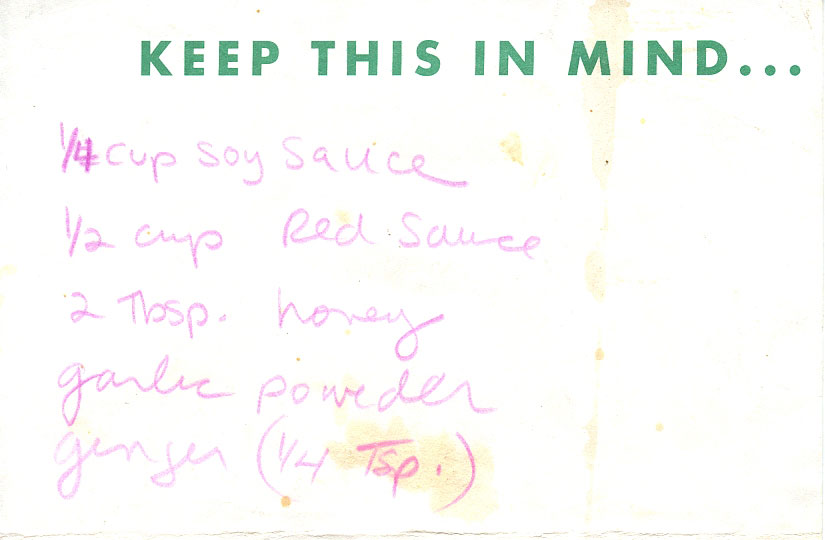 KEEP THIS IN MIND...
1/4 cup soy sauce
1/2 cup Red Sauce
2 Tbsp. honey
garlic poweder
ginger (1/4 Tsp.)